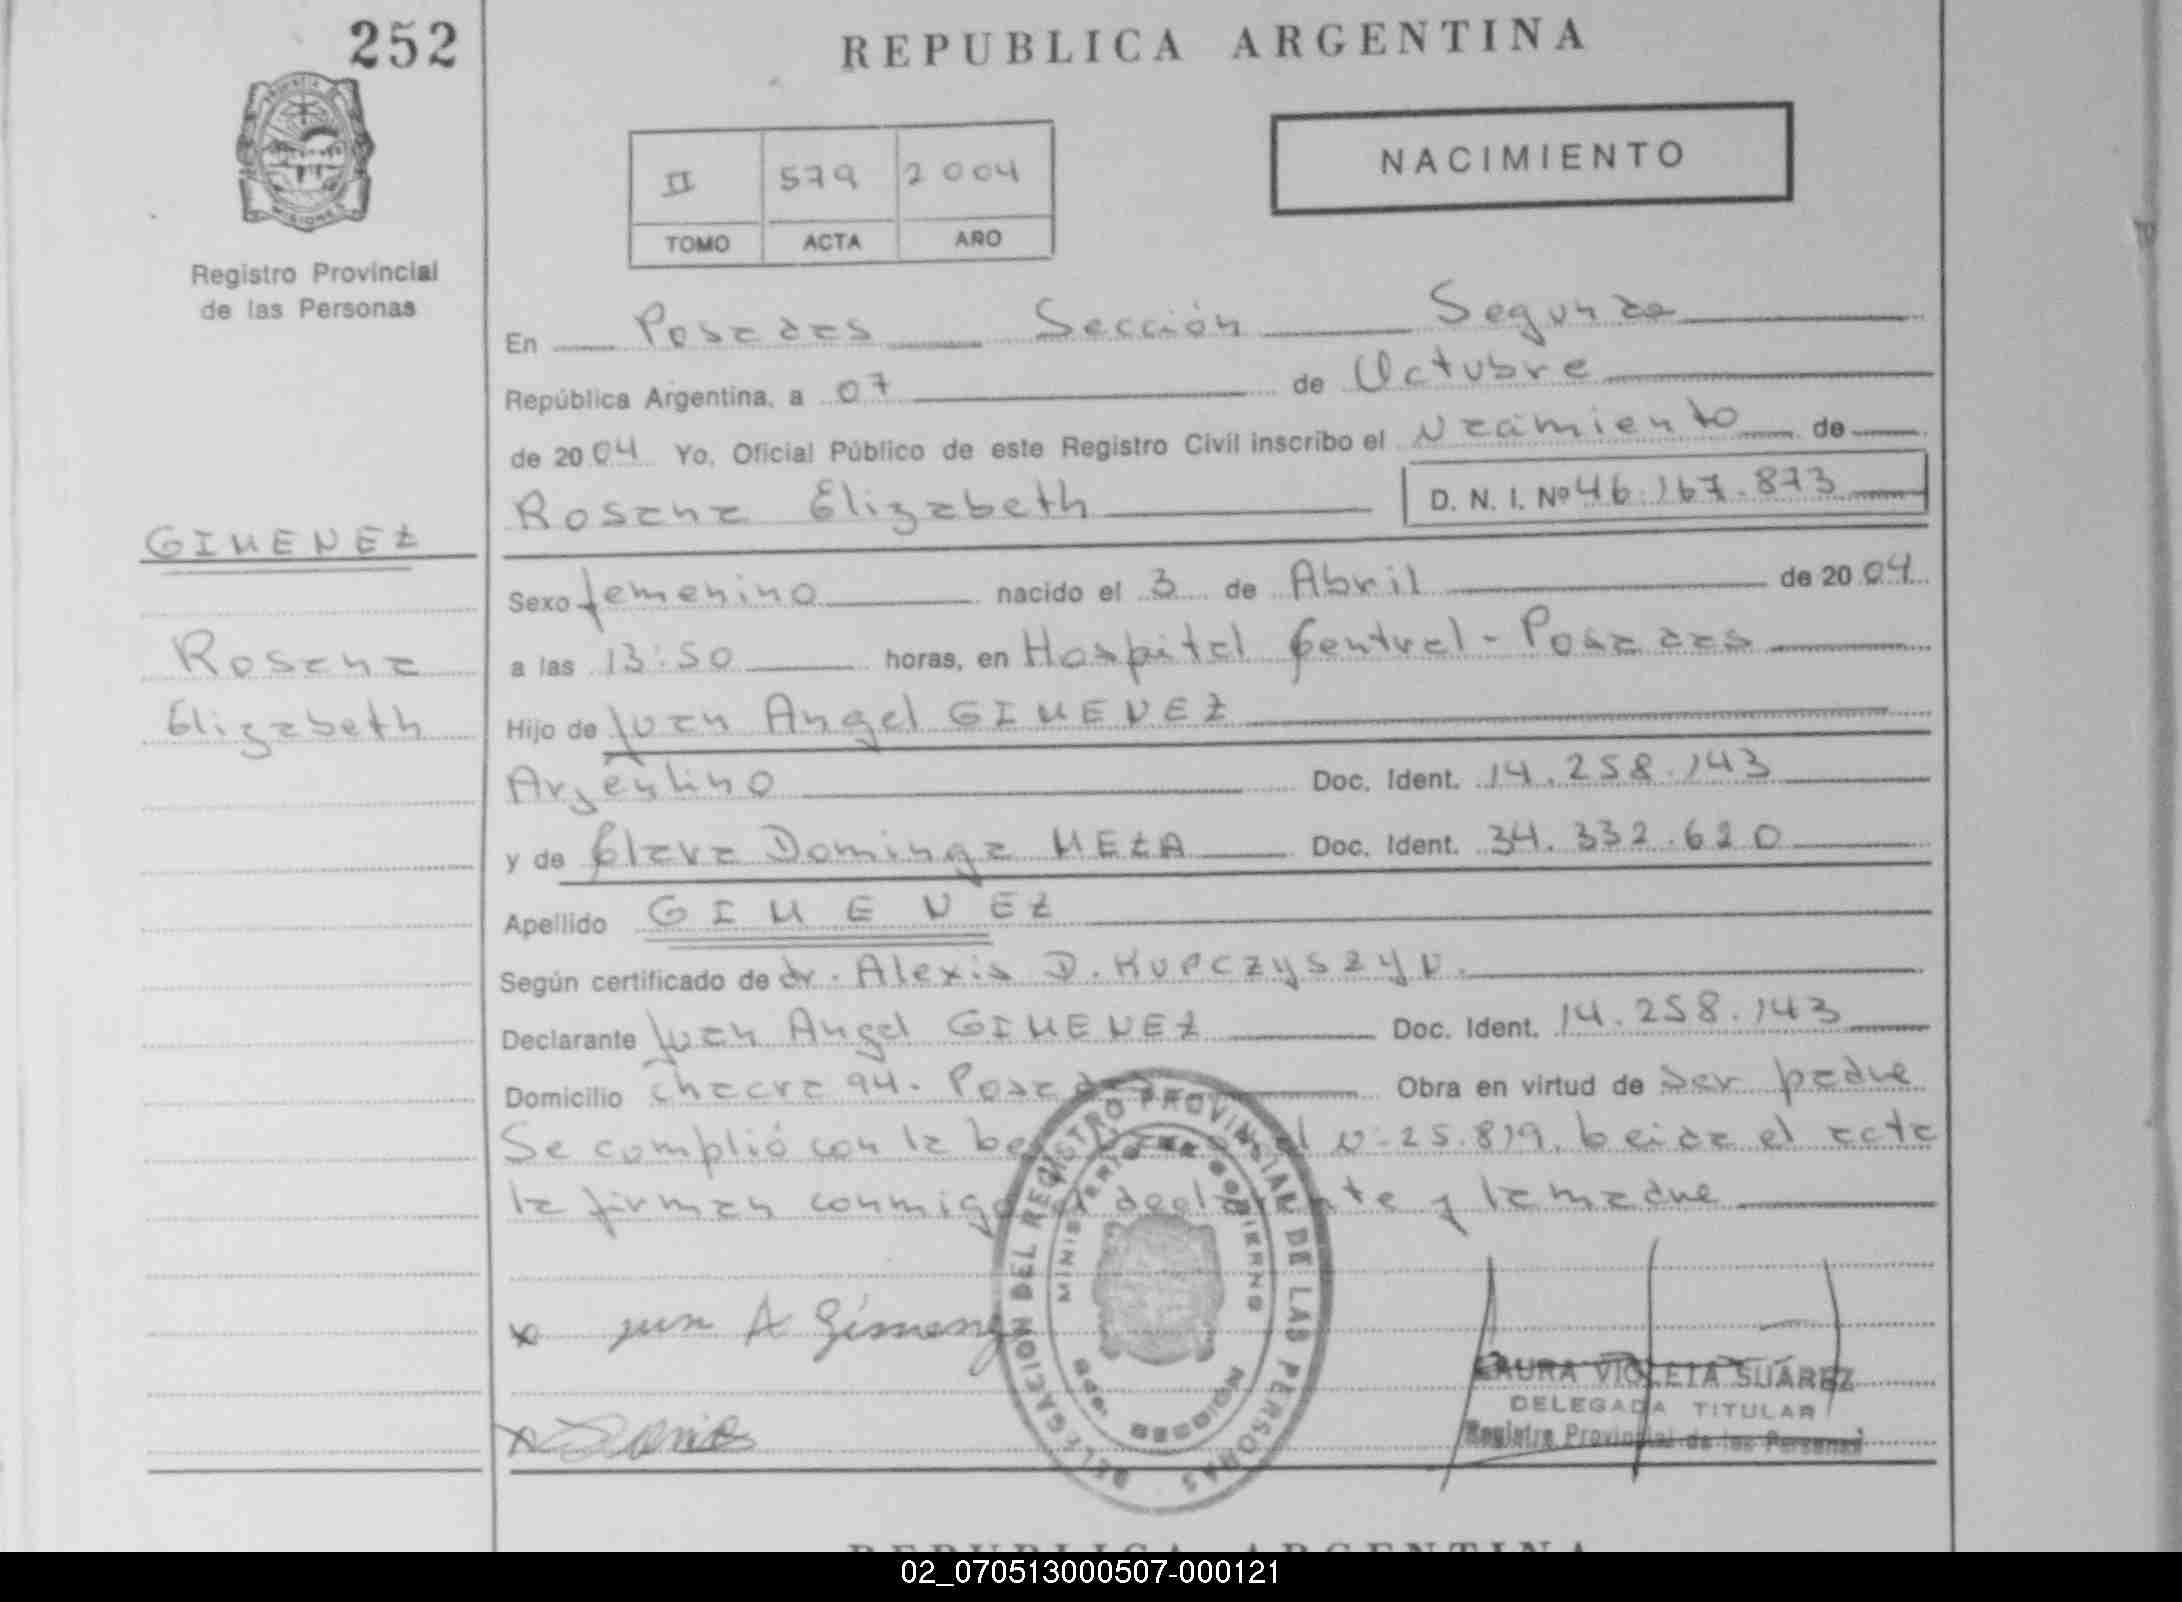 252
REPUBLICA ARGENTINA
PROVINCIA
MISIONES
Registro Provincial
de las Personas
II 579 2004
TOMO ACTA AÑO
NACIMIENTO
En Posadas Sección Segunda
República Argentina, a 07 de Octubre
de 2004 Yo, Oficial Público de este Registro Civil inscribo el Nacimiento de
Rosana Elizabeth D. N. I. Nº 46.167.873
GIMENEZ
Rosana
Elizabeth
Sexo femenino nacido el 3 de Abril de 2004
a las 13:50 horas, en Hospital Central - Posadas
Hijo de Juan Angel GIMENEZ
Argentino Doc. Ident. 14.258.143
y de Clara Dominga MEZA Doc. Ident. 34.332.620
Apellido GIMENEZ
Según certificado de dr. Alexis D. KUPCZYSZYN.
Declarante Juan Angel GIMENEZ Doc. Ident. 14.258.143
Domicilio chacra 94. Posadas Obra en virtud de ser padre
Se cumplió con la N: 25.819. Leida el acta
la firman conmigo el declarante y la madre
x Juan A Gimenez
x
DELEGACION DEL REGISTRO PROVINCIAL DE LAS PERSONAS
MINISTERIO DE GOBIERNO
MISIONES
LAURA VIOLETA SUAREZ
DELEGADA TITULAR
Registro Provincial de las Personas
REPUBLICA ARGENTINA
02_070513000507-000121